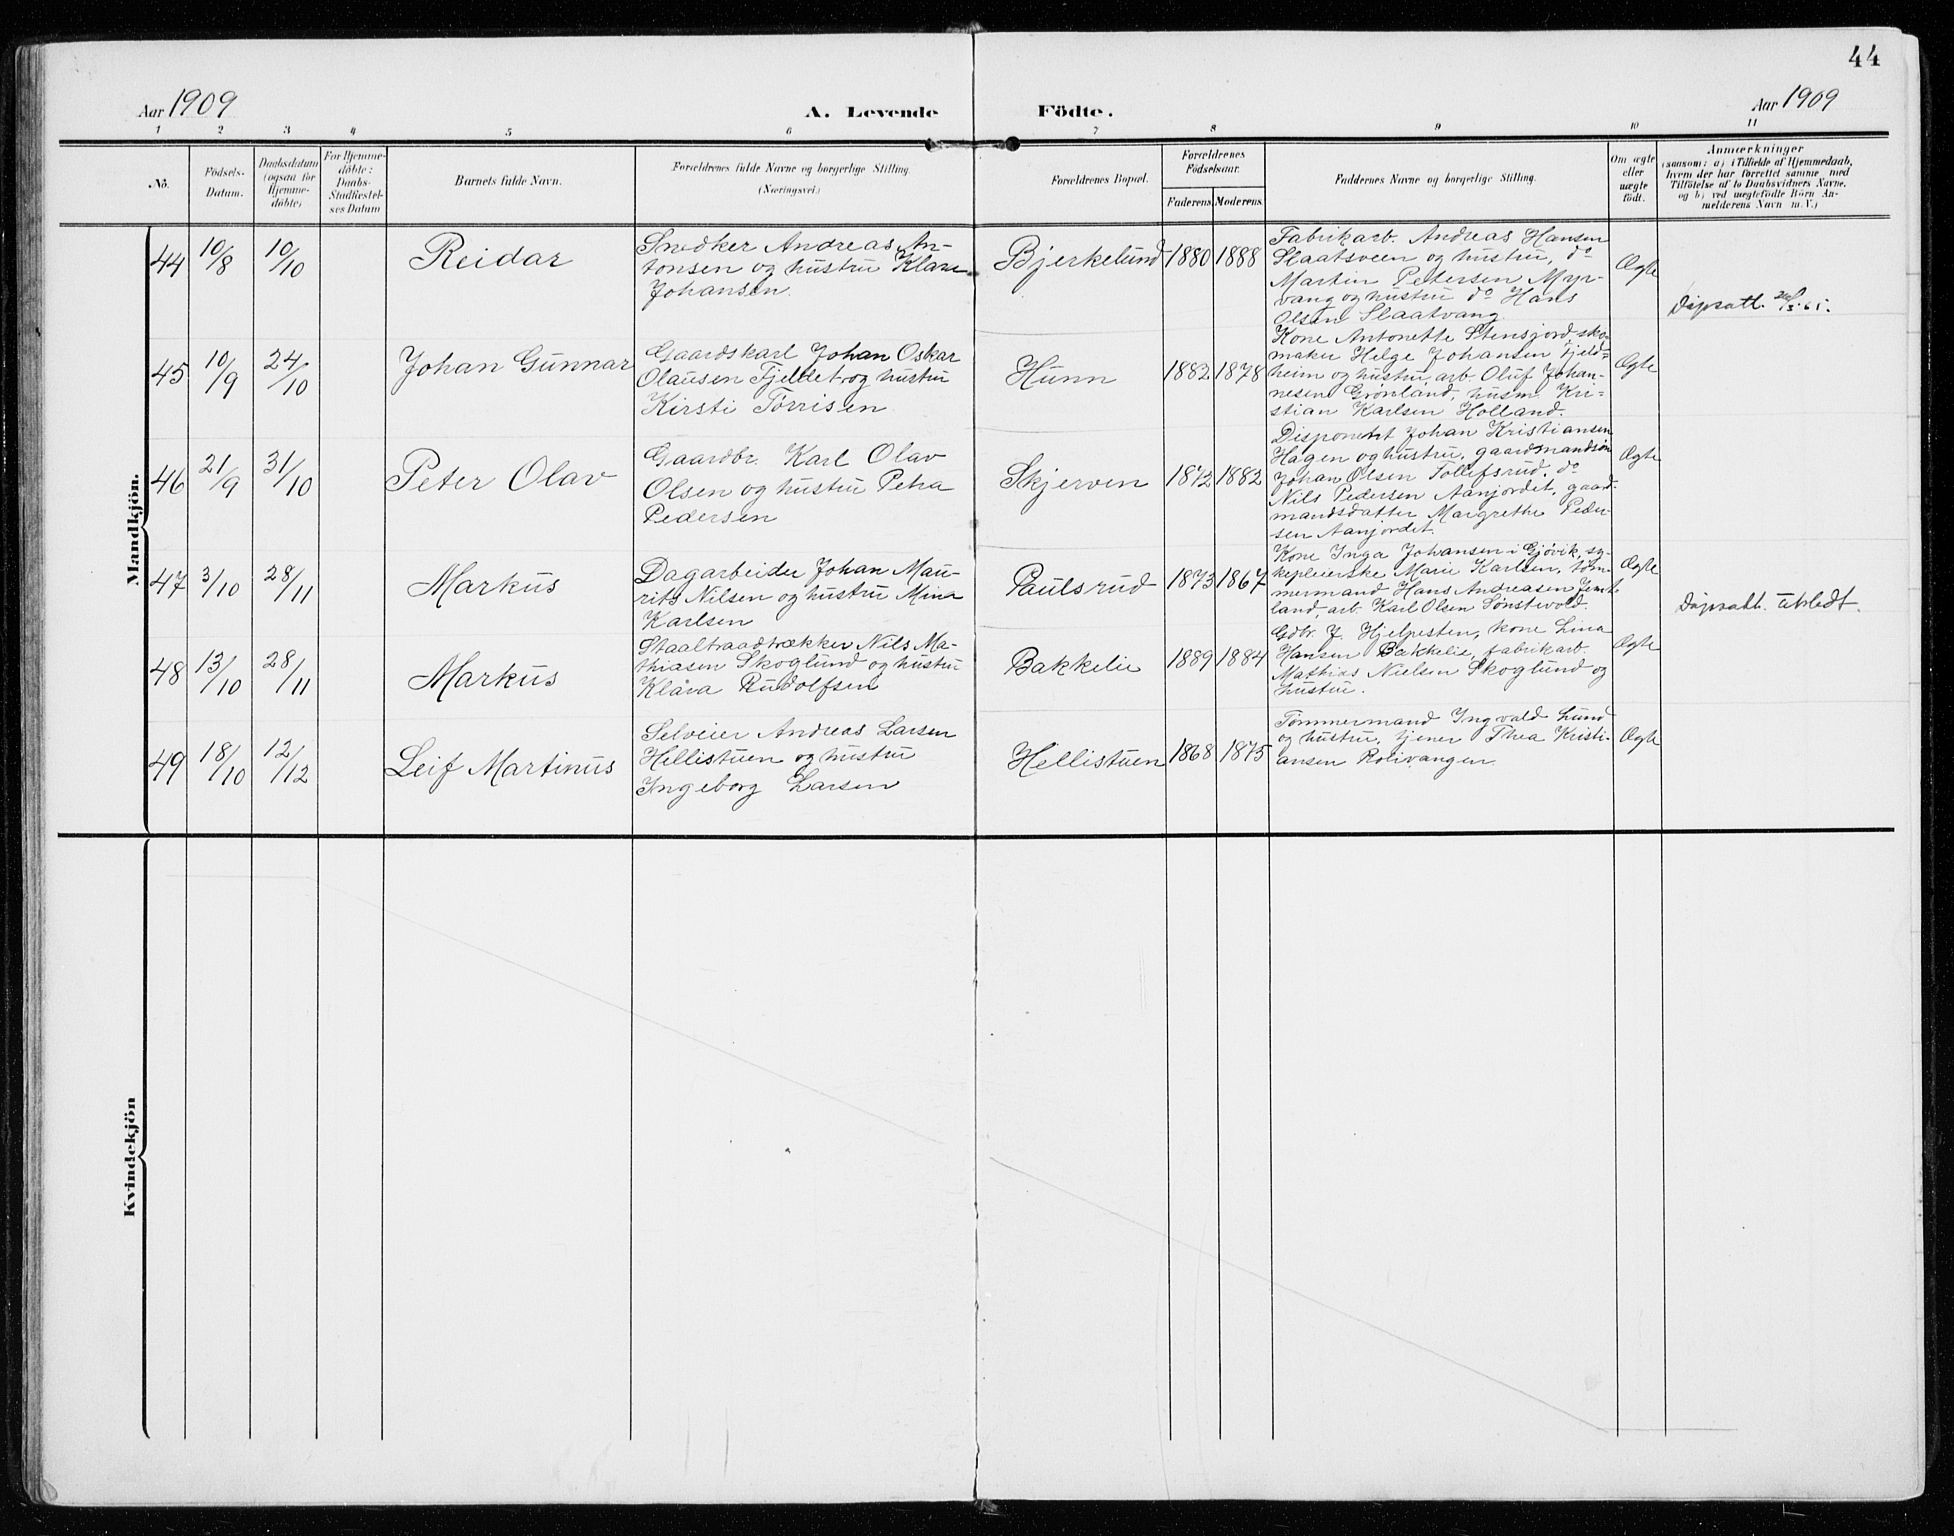 44
Aar 1909
A. Levende Födte.
Aar 1909
1 2 3 4 5 6 7 8 9 10 11
No.
Födsels-
Datum.
Daabsdatum
(ogsaa for
Hjemme-
döbte)
For Hjemme-
döbte:
Daabs-
Stadfæstel-
ses Datum
Barnets fulde Navn.
Forældrenes fulde Navne og borgerlige Stilling.
(Næringsvei.)
Forældrenes Bopæl.
Forældrenes
Födselsaar.
Faderens Moderens
Faddernes Navne og borgerlige Stilling.
Om ægte
eller
uægte
födt.
Anmærkninger
(saasom: a) i Tilfælde af Hjemmedaab,
hvem der har forrettet samme med
Tilföielse af to Daabsvidners Navne,
og b) ved uægtefödte Börn An-
melderens Navn m.V.)
Mandkjön.
44 10/8 10/10 Reidar
Snedker Andreas An-
tonsen og hustru Klara
Johansen.
Bjerkelund 1880 1888
Fabrikarb. Andreas Hansen
Slaatsveen og hustru, do
Martin Petersen Myr-
vang og hustru do Hans
Olsen Slaatvang
Ægte
Dåpsatt.
45 10/9 24/10 Johan Gunnar
Gaardskarl Johan Oskar
Olausen Fjeldet og hustru
Kirsti Torrisen
Hunn 1882 1878
Kone Antonette Stensjord sko-
maker Helge Johansen Fjeld-
heim og hustru, arb. Oluf Johan-
nesen Grønland, husm. Kri-
stian Karlsen Holland.
Ægte
46 21/9 31/10 Peter Olav
Gaardbr. Karl Olav
Olsen og hustru Petra
Pedersen
Skjerven 1872 1882
Disponent Johan Kristiansen
Hagen og hustru, gaardmandsøn
Johan Olsen Tollefsrud, do
Nils Pedersen Aanjordet, gaard-
mandsdatter Margrethe Peder-
sen Aanjordet.
Ægte
47 3/10 28/11 Markus
Dagarbeider Johan Mau-
rits Nilsen og hustru Mina
Karlsen
Paulsrud 1873 1867
Kone Inga Johansen i Gjøvik, sy-
kepleierske Marie Karlsen, tøm-
mermand Hans Andreasen Jemt-
land, arb. Karl Olsen Sønstevold.
Ægte
Dåpsatt. utstedt.
48 13/10 28/11 Markus
Staaltraadtrækker Nils Ma-
thiasen Skoglund og hustru
Klara Rudolfsen
Bakkelie 1889 1884
Gdbr. J. Hjelpesten, kone Lina
Hansen Bakkelie, fabrikarb.
Mathias Nielsen Skoglund og
hustru.
Ægte
49 18/10 12/12 Leif Martinus
Selveier Andreas Larsen
Hellistuen og hustru
Ingeborg Larsen
Hellistuen 1868 1875
Tømmermand Ingvald Lund
og hustru, tjener Thea Kristi-
ansen Rolivangen
Ægte
Kvindekjön